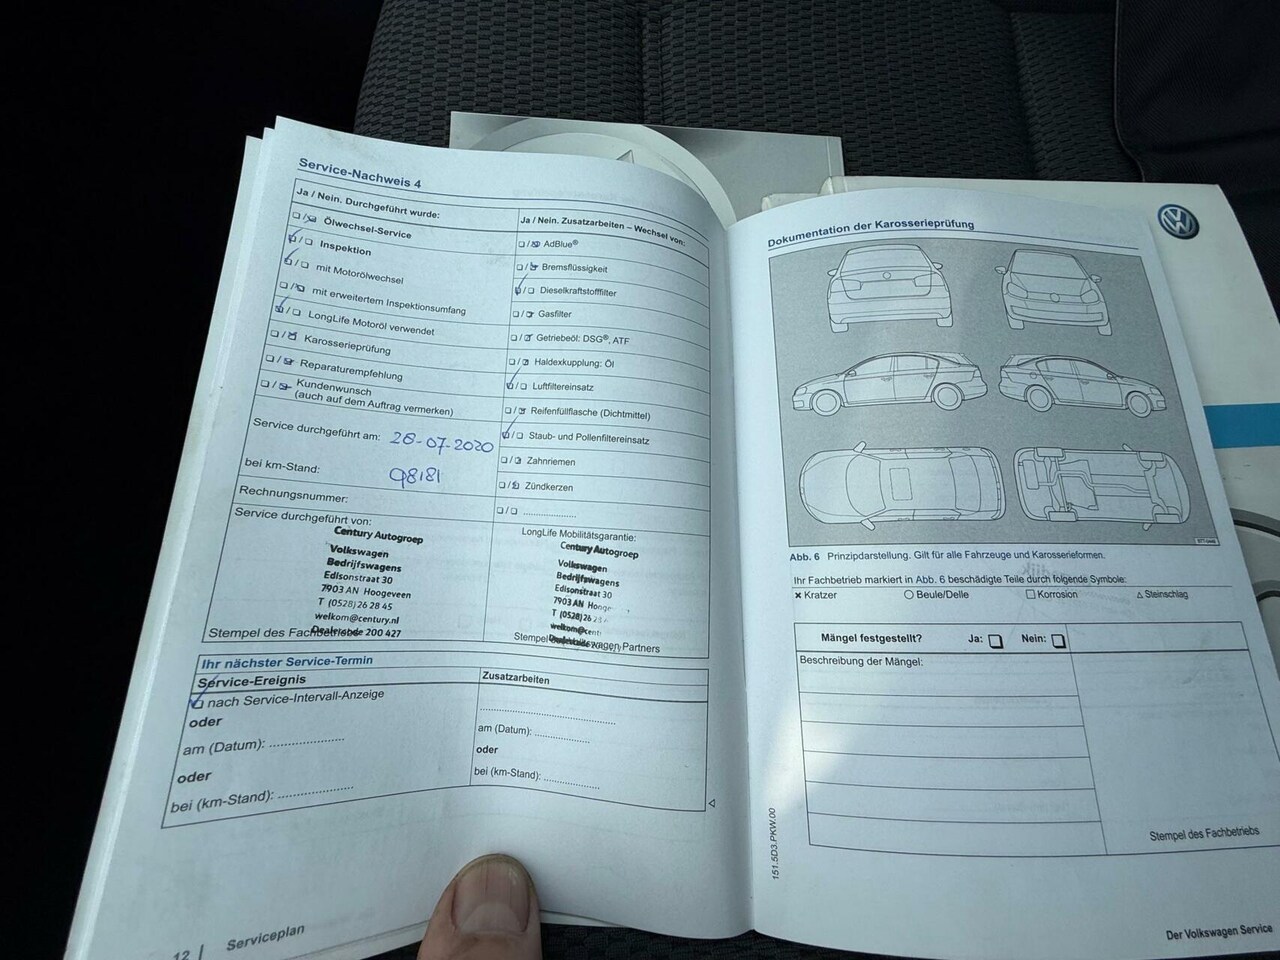 Service-Nachweis 4
Ja / Nein. Durchgeführt wurde:
Ölwechsel-Service
Inspektion
mit Motorölwechsel
mit erweitertem Inspektionsumfang
LongLife Motoröl verwendet
Karosserieprüfung
Reparaturempfehlung
Kundenwunsch
(auch auf dem Auftrag vermerken)
Ja / Nein. Zusatzarbeiten – Wechsel von:
AdBlue®
Bremsflüssigkeit
Dieselkraftstofffilter
Gasfilter
Getriebeöl: DSG®, ATF
Haldexkupplung: Öl
Luftfiltereinsatz
Reifenfüllflasche (Dichtmittel)
Staub- und Pollenfiltereinsatz
Zahnriemen
Zündkerzen
Service durchgeführt am: 28-07-2020
bei km-Stand: 98181
Rechnungsnummer:
Service durchgeführt von:
Century Autogroep
Volkswagen
Bedrijfswagens
Edisonstraat 30
7903 AN Hoogeveen
T (0528) 26 28 45
welkom@century.nl
Dealercode 200 427
Stempel des Fachbetriebs
LongLife Mobilitätsgarantie:
Century Autogroep
Volkswagen
Bedrijfswagens
Edisonstraat 30
7903 AN
T (0528) 26
Stempel Volkswagen Partners
Ihr nächster Service-Termin
Service-Ereignis
nach Service-Intervall-Anzeige
oder
am (Datum): ....................
oder
bei (km-Stand): ....................
Zusatzarbeiten
am (Datum): ...............
oder
bei (km-Stand): ...............
12 | Serviceplan
Dokumentation der Karosserieprüfung
Abb. 6 Prinzipdarstellung. Gilt für alle Fahrzeuge und Karosserieformen.
Ihr Fachbetrieb markiert in Abb. 6 beschädigte Teile durch folgende Symbole:
Kratzer
Beule/Delle
Korrosion
Steinschlag
Mängel festgestellt? Ja: Nein:
Beschreibung der Mängel:
Stempel des Fachbetriebs
151.5D3.PKW.00
Der Volkswagen Service